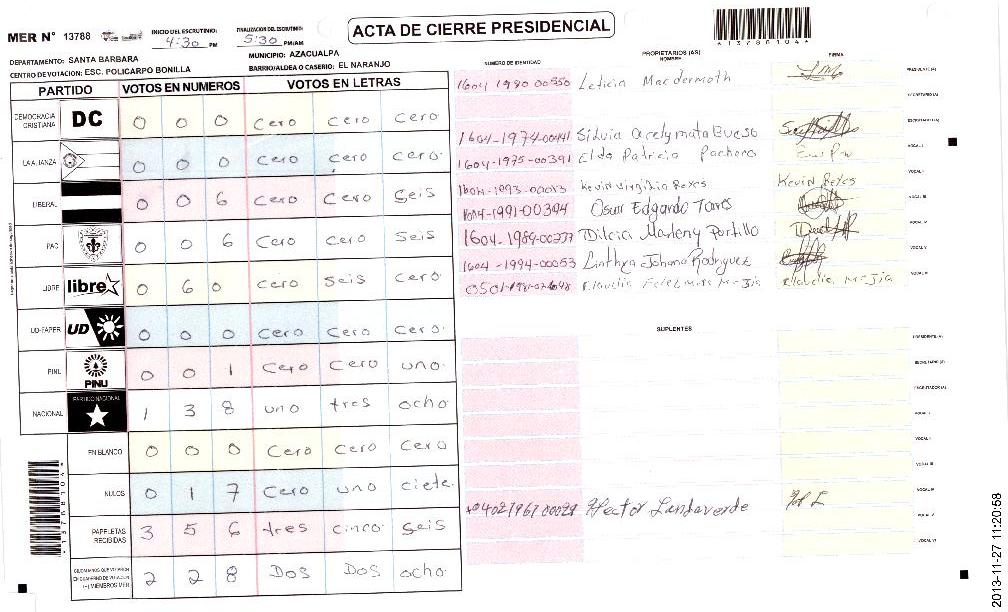 MER N° 13788
INICIO DEL ESCRUTINIO: 4:30 PM
FINALIZACION DEL ESCRUTINIO: 5:30 PM/AM
ACTA DE CIERRE PRESIDENCIAL
*13788104*
DEPARTAMENTO: SANTA BARBARA
MUNICIPIO: AZACUALPA
CENTRO DE VOTACION: ESC. POLICARPO BONILLA
BARRIO/ALDEA O CASERIO: EL NARANJO
PARTIDO VOTOS EN NUMEROS VOTOS EN LETRAS
DEMOCRACIA CRISTIANA DC 0 0 0 cero cero cero
LA ALIANZA 0 0 0 cero cero cero
LIBERAL 0 0 6 cero cero seis
PAC 0 0 6 cero cero seis
LIBRE libre 0 6 0 cero seis cero
UD-FAPER UD 0 0 0 cero cero cero
PINU PINU 0 0 1 cero cero uno
NACIONAL PARTIDO NACIONAL 1 3 8 uno tres ocho
EN BLANCO 0 0 0 cero cero cero
NULOS 0 1 7 cero uno ciete
PAPELETAS RECIBIDAS 3 5 6 tres cinco seis
CIUDADANOS QUE VOTARON EN CUADERNO DE VOTACION (+) MIEMBROS MER 2 2 8 Dos Dos ocho
*13788104*
NUMERO DE IDENTIDAD PROPIETARIOS (AS) NOMBRE FIRMA
1604 1980 00550 Leticia Macdermoth PRESIDENTE (A)
SECRETARIO (A)
1604-1974-00441 Silvia Aracely mata Bueso ESCRUTADOR (A)
1604-1975-00391 Elda Patricia Pacheco VOCAL I
Kevin Virgilio Reyes Kevin Reyes
1604-1991-00394 Oscar Edgardo VOCAL III
1604-1989-00277 Dilcia Marleny Portillo VOCAL IV
1604-1994-00053 Johana Rodriguez VOCAL V
Claudia
SUPLENTES
PRESIDENTE (A)
SECRETARIO (A)
ESCRUTADOR (A)
VOCAL I
VOCAL II
VOCAL III
Hector Landaverde VOCAL IV
VOCAL V
VOCAL VI
2013-11-27 11:20:58